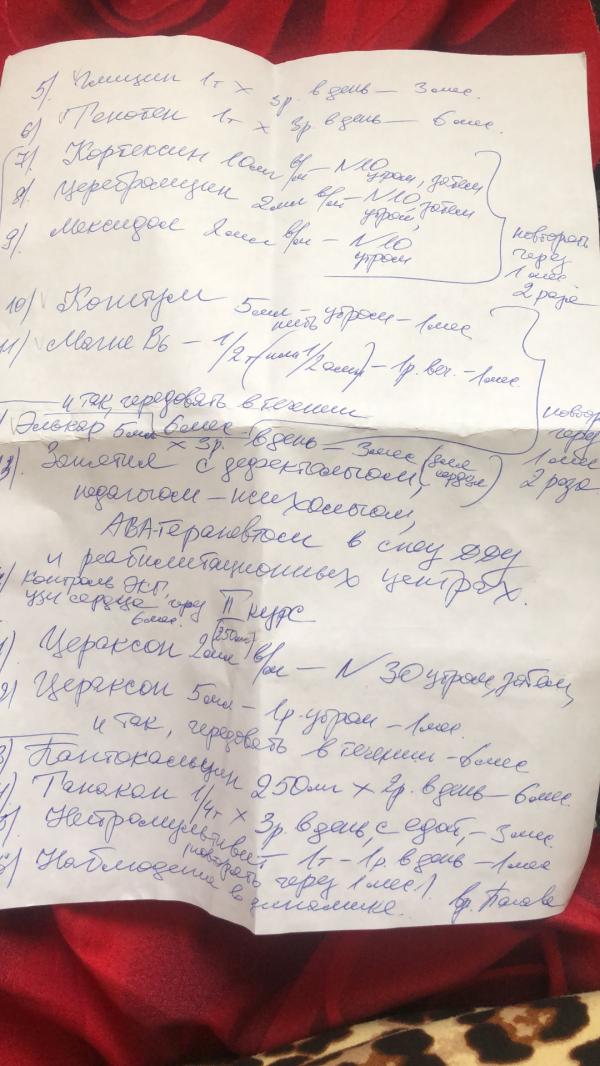 5) Глицин 1т х 3р. в день – 3 мес.
6) Тенотен 1т х 3р. в день – 6 мес.
7) Кортексин 10мг в/м – N10 утром, затем
8) Церебролизин 2мл в/м – N10, утром, затем
9) Мексидол 2мл в/м – N10 утром
повторять через 1 мес. 2 раза
10) Когитум 5мл – пить утром – 1 мес
11) Магне В6 – 1/2т (или 1/2 амп) – 1р. веч. – 1 мес
и так, чередовать в течении 6 мес
через 1 мес 2 раза
) Элькар 5мл х 3р. в день – 3 мес (для сердца)
3. Занятия с дефектологом,
педагогом – психологом,
АВА-терапевтом в спец ДДУ
и реабилитационных центрах.
) Контроль ЭКГ,
узи сердца через 6 мес.
II курс
1) Цераксон 2мл (250мг) в/м – N 30 утром, затем,
2) Цераксон 5мл – 1р. утром – 1 мес.
и так, чередовать в течении – 6 мес
3) Пантокальцин 250мг х 2р. в день – 6 мес.
4) Танакан 1/4т х 3р. в день, с едой, – 3 мес.
5) 1т – 1р. в день – 1 мес
(повторять через 1 мес).
6) Наблюдение в динамике.
вр.